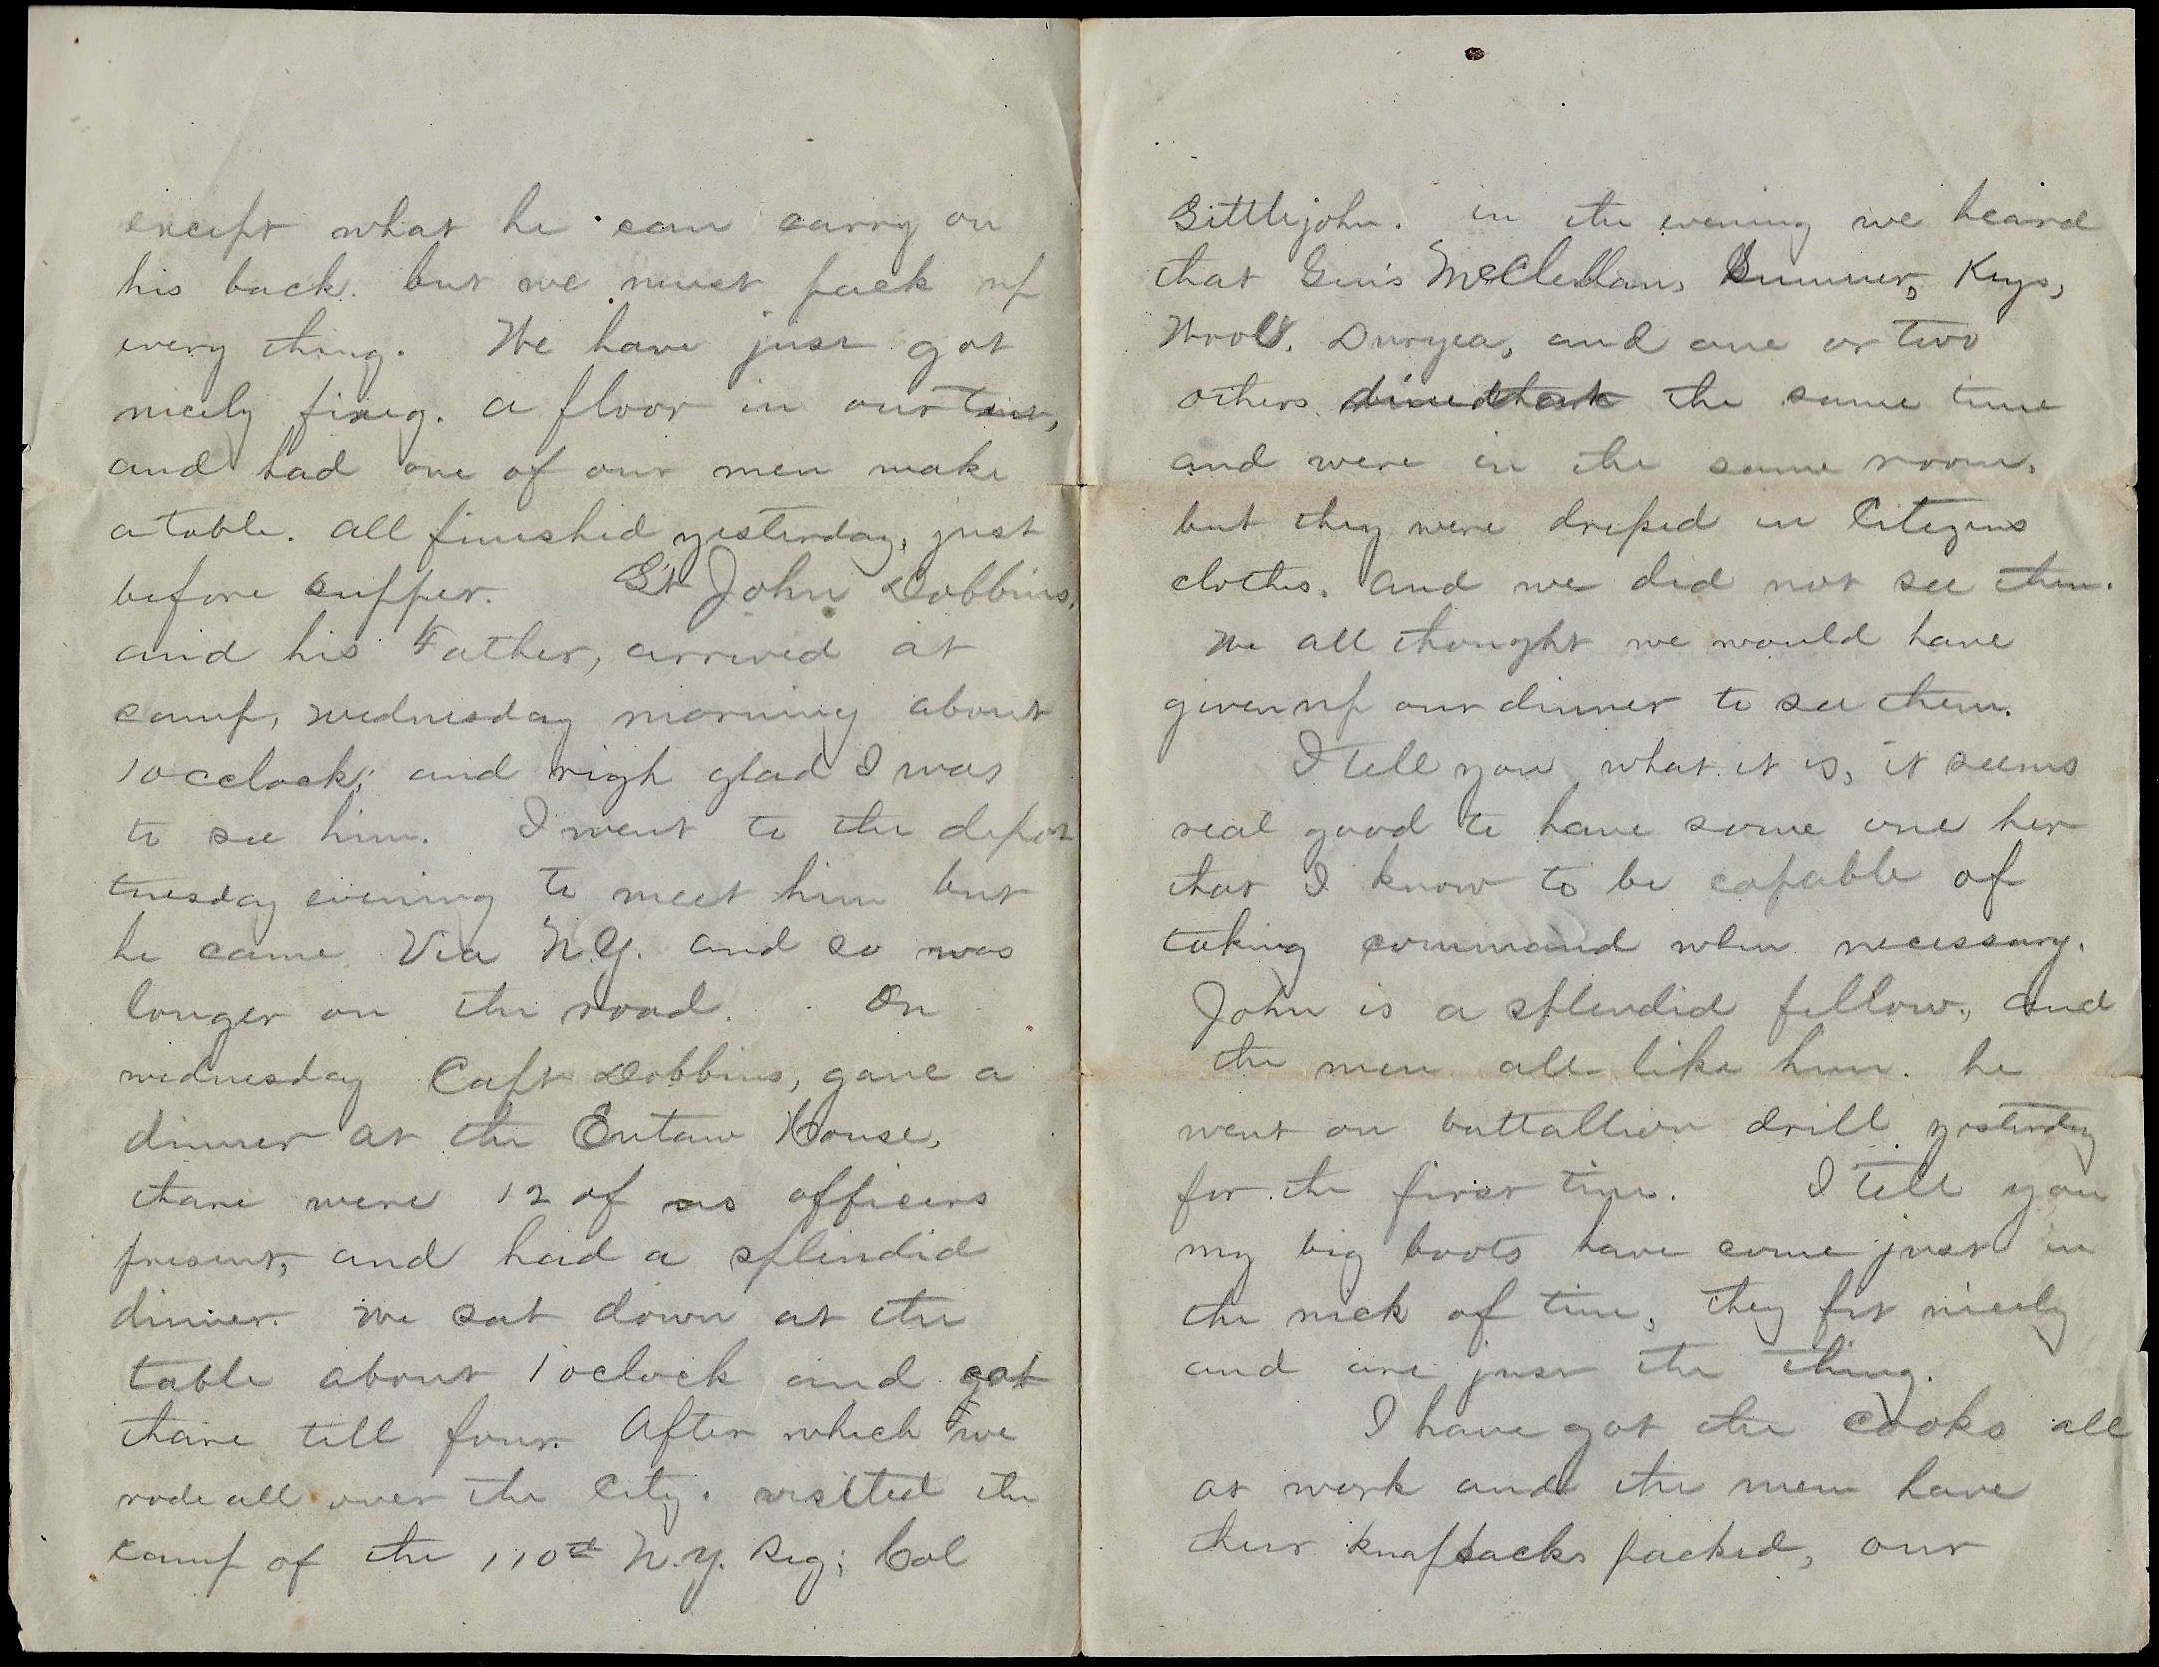 except what he can carry on
his back. but we must pack up
every thing. We have just got
nicely fixeg. a floor in our tent,
and had one of our men make
a table. all finished yesterday, just
before supper. Lt John Dobbins,
and his Father, arrived at
camp, wednesday morning about
10 oclock; and righ glad I was
to see him. I went to the depot
tuesday evening to meet him but
he came Via N.Y. and so was
longer on the road. On
wednesday Capt Dobbins, gave a
dinner at the Eutaw House,
thare were 12 of us officers
present, and had a splindid
dinner. We sat down at the
table about 1 oclock and sat
thare till four. After which we
rode all over the City. visited the
camp of the 110th N.Y. Reg; Col
Littlejohn. in the evening we heard
that Gen's McClellan, Sumner, Keys,
Wool, Duryea, and one or two
others. dined at the same time
and were in the same room.
but they were dressed in Citizens
clothes. and we did not see them.
We all thought we would have
given up our dinner to see them.
I tell you what it is, it seems
real good to have some one her
that I know to be capable of
taking command when necessary.
John is a splendid fellow, and
the men all like him. he
went on battallion drill yesterday
for the first time. I tell you
my big boots have come just in
the nick of time, they fit nicely
and are just the thing.
I have got the cooks all
at work and the men have
their knapsacks packed, our